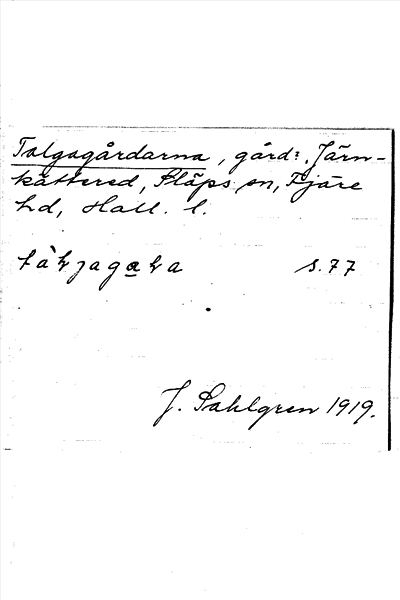 Talgagårdarna, gård: Järn-
kättered, Släps sn, Fjäre
hd, Hall. l.
s. 77
J. Sahlgren 1919.